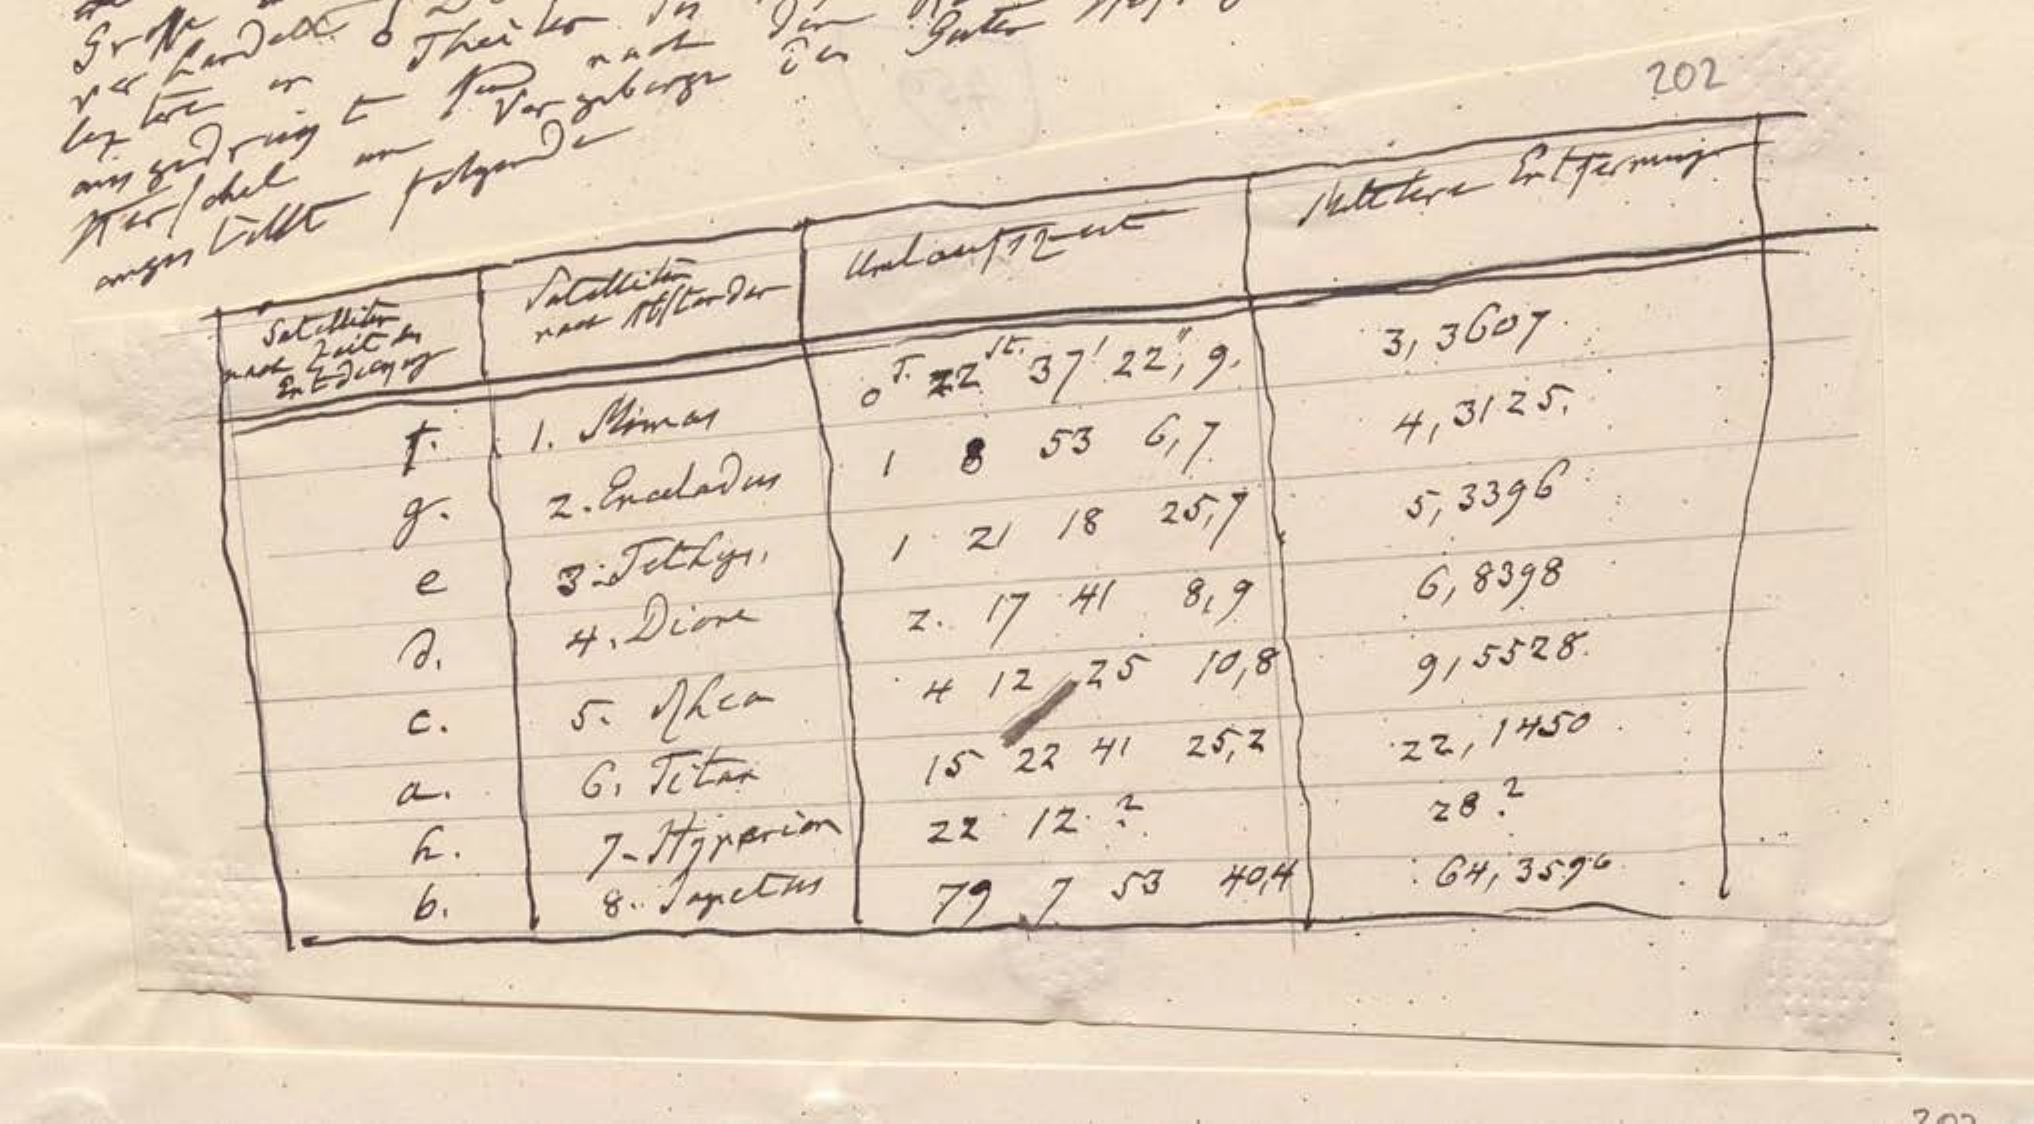 verhandelt
in Theilen
ausgedrückt nach den
Herschel am Vorgebirge der Guten
angestellt folgende
202
Satelliten nach Zeit der Entdeckung | Satelliten nach Abständen | Umlaufszeit | Mittlere Entfernung
f. | 1. Mimas | 0 T. 22 St. 37' 22", 9. | 3, 3607
g. | 2. Enceladus | 1 8 53 6,7 | 4, 3125.
e | 3. Tethys. | 1 21 18 25,7 | 5, 3396
d. | 4. Dione | 2. 17 41 8,9 | 6, 8398
c. | 5. Rhea | 4 12 25 10,8 | 9, 5528.
a. | 6. Titan | 15 22 41 25,2 | 22, 1450
h. | 7. Hyperion | 22 12 ? | 28 ?
b. | 8. Japetus | 79 7 53 40,4 | 64, 3596